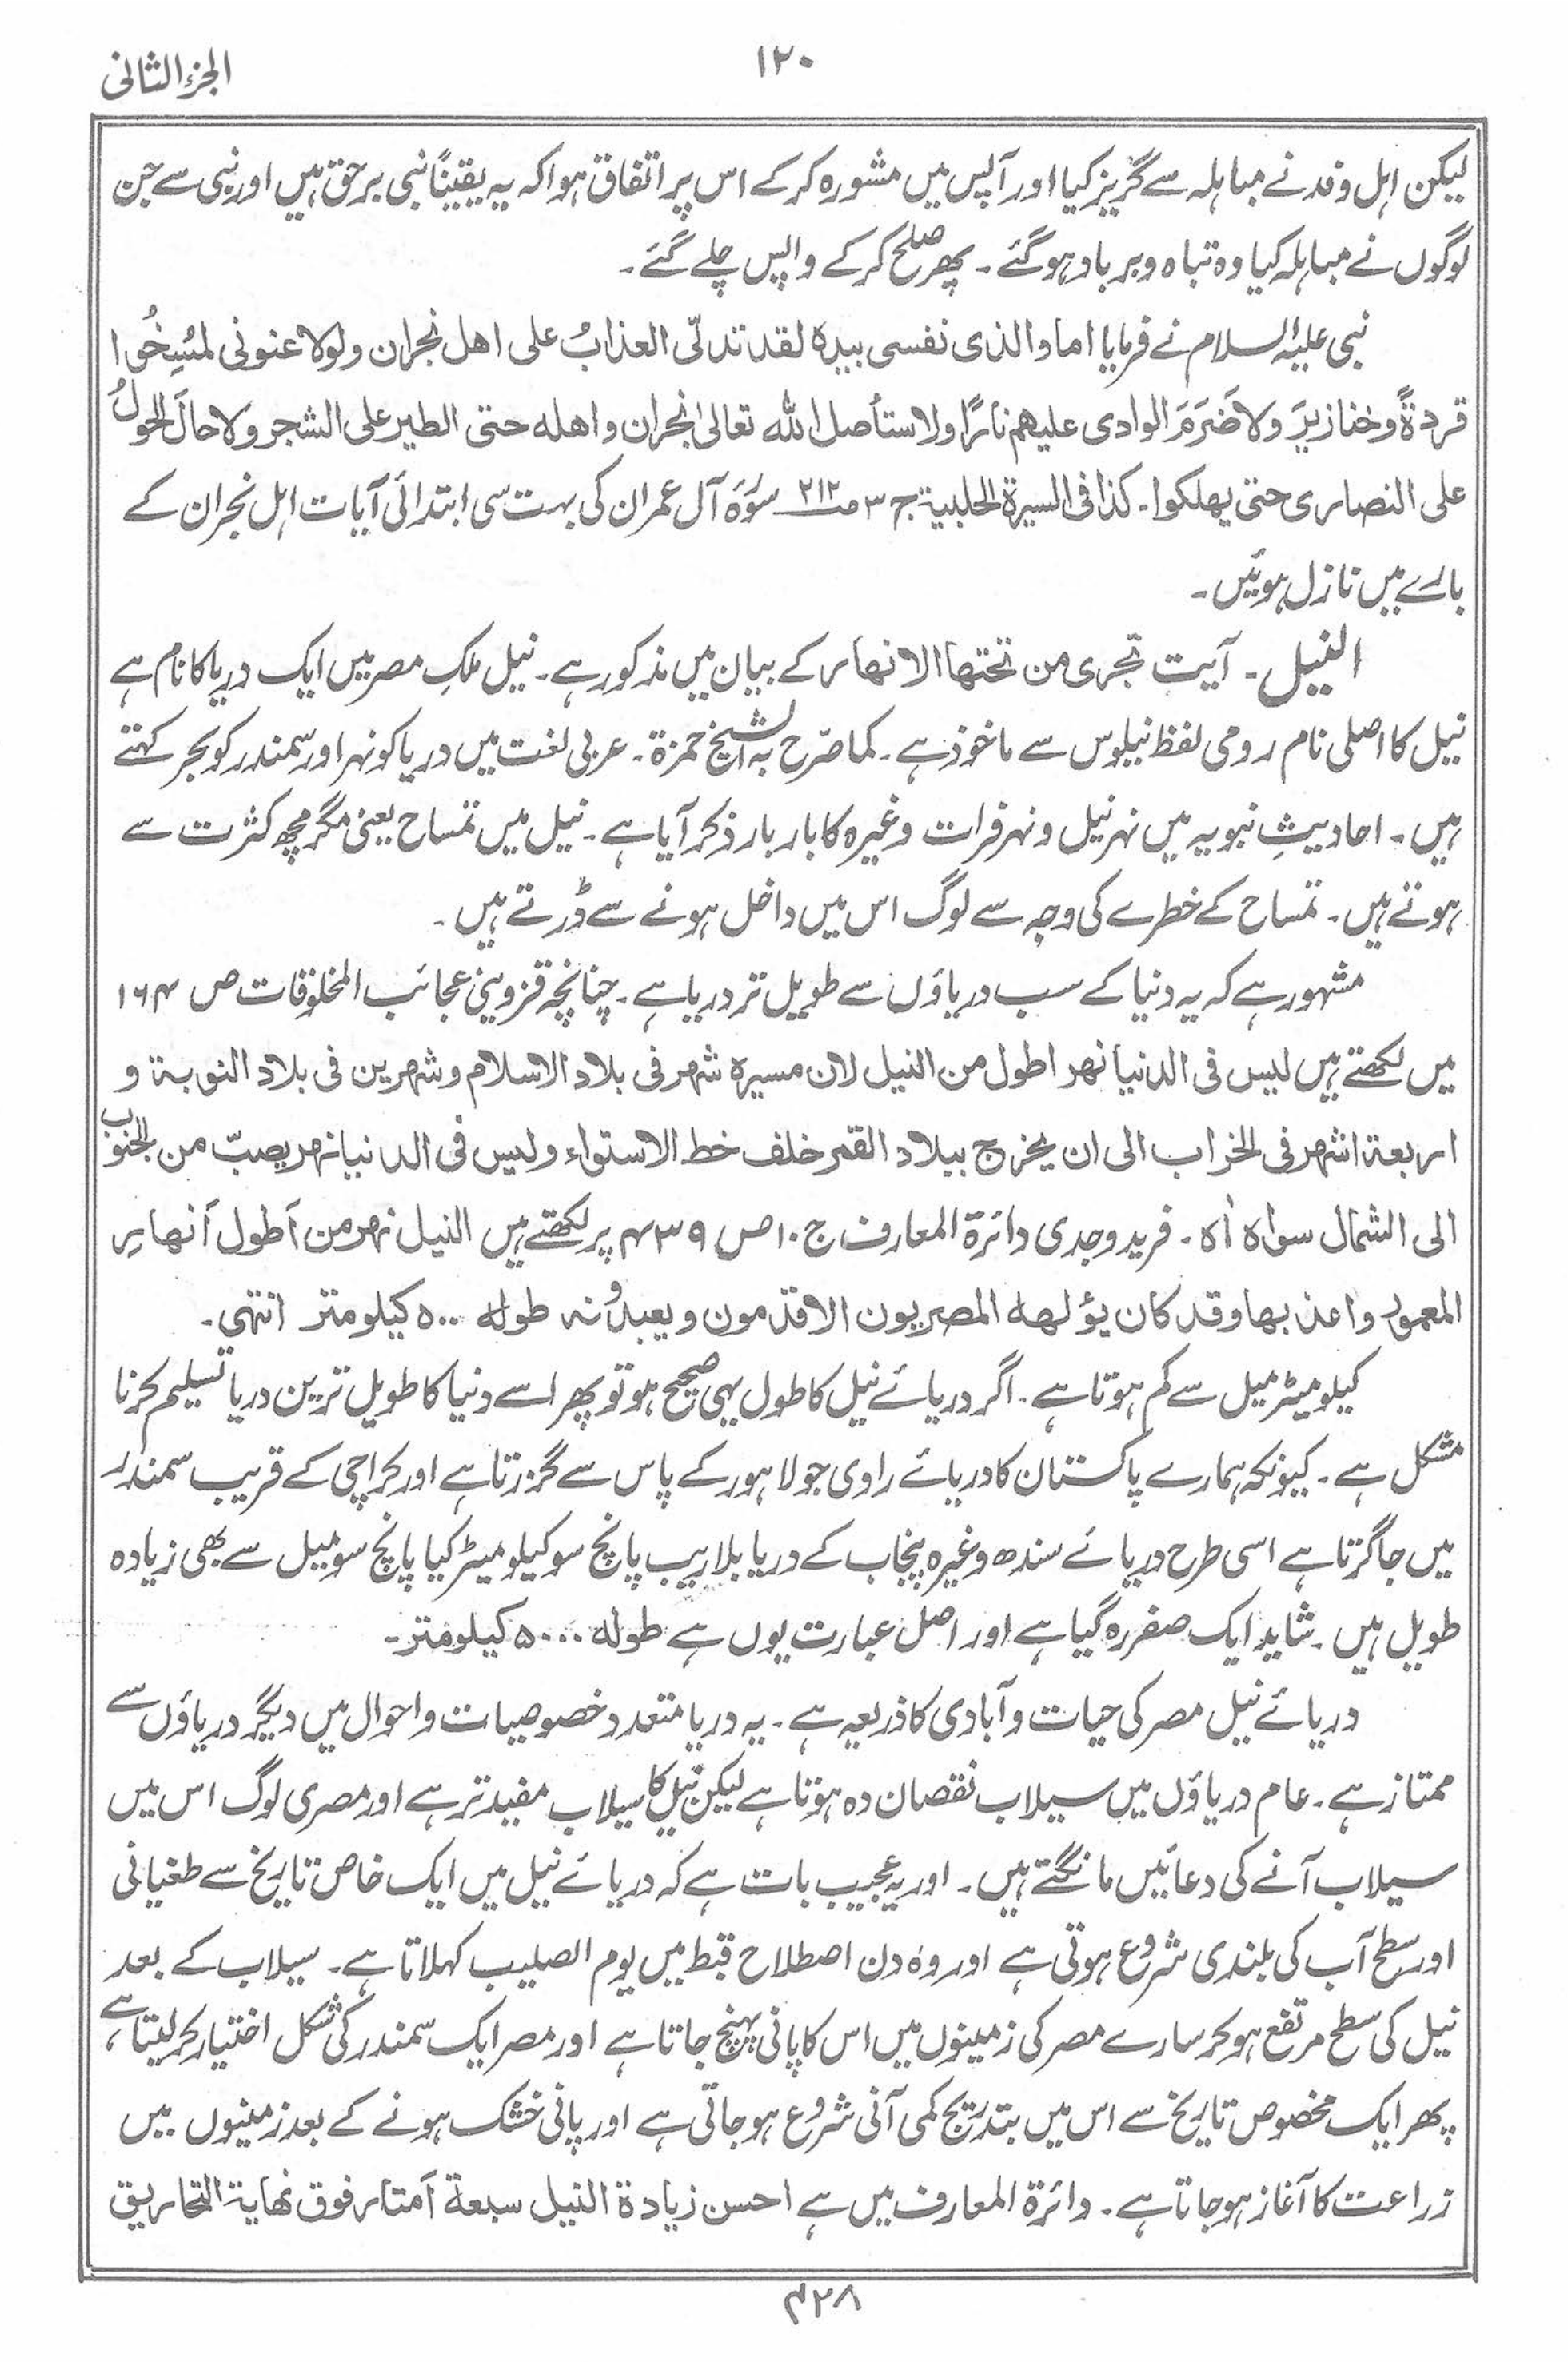 الجزء الثانی
۱۲۰
لیکن اہل وفد نے مباہلہ سے گریز کیا اور آپس میں مشورہ کرکے اس پر اتفاق ہوا کہ یہ یقیناً نبی برحق ہیں اور نبی سے جن
لوگوں نے مباہلہ کیا وہ تباہ و برباد ہوگئے ۔ پھر صلح کرکے واپس چلے گئے ۔
نبی علیہ السلام نے فرمایا اما والذی نفسی بیدہ لقد تدلّی العذابُ علی اھل نجران ولولا عنونی لمُسِخُوا
قردةً وخنازیرَ ولاضَرَمَ الوادی علیھم نارًا ولاستأصل اللہ تعالیٰ نجران واھلہ حتی الطیر علی الشجر ولا حالَ الحولُ
علی النصاری حتی یھلکوا ۔ کذا فی السیرة الحلبیة ج ۳ ص ۲۱۲ سورۃ آل عمران کی بہت سی ابتدائی آیات اہل نجران کے
بارے میں نازل ہوئیں ۔
النیل ۔ آیت تجری من تحتھا الانھار کے بیان میں مذکور ہے ۔ نیل ملکِ مصر میں ایک دریا کا نام ہے
نیل کا اصلی نام رومی لفظ نیلوس سے ماخوذ ہے ۔ کما صرّح بہ الشیخ حمزة ۔ عربی لغت میں دریا کو نہر اور سمندر کو بحر کہتے
ہیں ۔ احادیثِ نبویہ میں نہر نیل و نہر فرات وغیرہ کا بار بار ذکر آیا ہے ۔ نیل میں تمساح یعنی مگرمچھ کثرت سے
ہوتے ہیں ۔ تمساح کے خطرے کی وجہ سے لوگ اس میں داخل ہونے سے ڈرتے ہیں ۔
مشہور ہے کہ یہ دنیا کے سب دریاؤں سے طویل تر دریا ہے ۔ چنانچہ قزوینی عجائب المخلوقات ص ۱۶۴
میں لکھتے ہیں لیس فی الدنیا نھر اطول من النیل لان مسیرہ شھر فی بلاد الاسلام وشھرین فی بلاد النوبة و
اربعة اشھر فی الخراب الی ان یخرج ببلاد القمر خلف خط الاستواء ولیس فی الدنیا نھر یصبّ من الجنوب
الی الشمال سواہ اھ ۔ فرید وجدی دائرة المعارف ج ۱۰ ص ۴۳۹ پر لکھتے ہیں النیل نھر من أطول أنھارِ
المعمور واعذبھا وقد کان یؤلھہ المصریون الاقدمون ویعبدونہ طولہ ۵۰۰ کیلومتر انتہی ۔
کیلومیٹر میل سے کم ہوتا ہے ۔ اگر دریائے نیل کا طول یہی صحیح ہو تو پھر اسے دنیا کا طویل ترین دریا تسلیم کرنا
مشکل ہے ۔ کیونکہ ہمارے پاکستان کا دریائے راوی جو لاہور کے پاس سے گزرتا ہے اور کراچی کے قریب سمندر
میں جا گرتا ہے اسی طرح دریائے سندھ وغیرہ پنجاب کے دریا بلاریب پانچ سو کیلومیٹر کیا پانچ سو میل سے بھی زیادہ
طویل ہیں ۔ شاید ایک صفر رہ گیا ہے اور اصل عبارت یوں ہے طولہ ۵۰۰۰ کیلومتر ۔
دریائے نیل مصر کی حیات و آبادی کا ذریعہ ہے ۔ یہ دریا متعدد خصوصیات و احوال میں دیگر دریاؤں سے
ممتاز ہے ۔ عام دریاؤں میں سیلاب نقصان دہ ہوتا ہے لیکن نیل کا سیلاب مفید تر ہے اور مصری لوگ اس میں
سیلاب آنے کی دعائیں مانگتے ہیں ۔ اور یہ عجیب بات ہے کہ دریائے نیل میں ایک خاص تاریخ سے طغیانی
اور سطح آب کی بلندی شروع ہوتی ہے اور وہ دن اصطلاح قبط میں یوم الصلیب کہلاتا ہے ۔ سیلاب کے بعد
نیل کی سطح مرتفع ہوکر سارے مصر کی زمینوں میں اس کا پانی پہنچ جاتا ہے اور مصر ایک سمندر کی شکل اختیار کرلیتا ہے ،
پھر ایک مخصوص تاریخ سے اس میں بتدریج کمی آنی شروع ہوجاتی ہے اور پانی خشک ہونے کے بعد زمینوں میں
زراعت کا آغاز ہوجاتا ہے ۔ دائرة المعارف میں ہے احسن زیادة النیل سبعة أمتار فوق نھایة التحاریق
۴۲۸